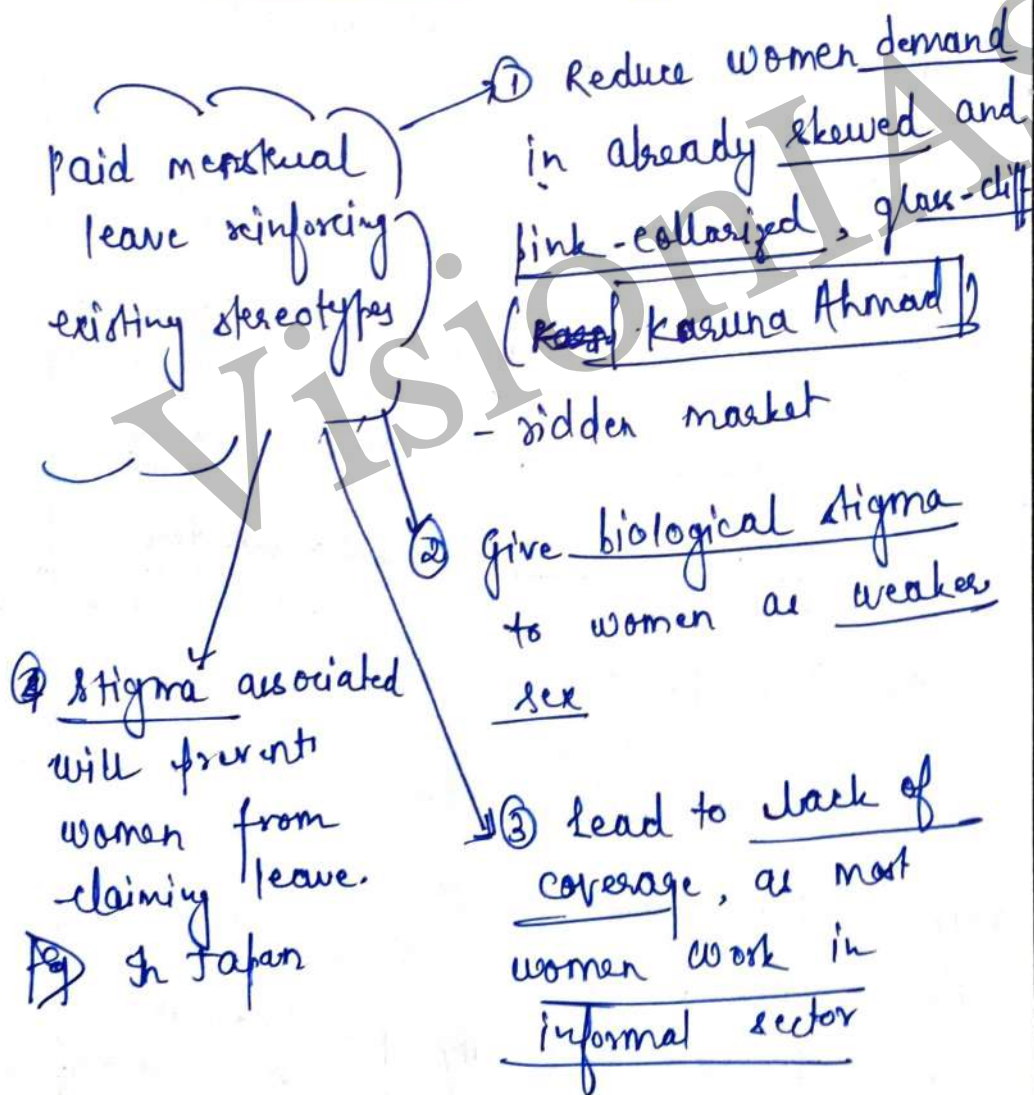 paid menstrual
leave reinforcing
existing stereotypes
① Reduce women demand
in already skewed and
pink-collarized, glass-cliff
(Karuna Ahmad)
- ridden market
② Give biological stigma
to women as weaker
sex
③ Lead to lack of
coverage, as most
women work in
informal sector
④ Stigma associated
will prevent
women from
claiming leave.
Eg In Japan
VisionIAS